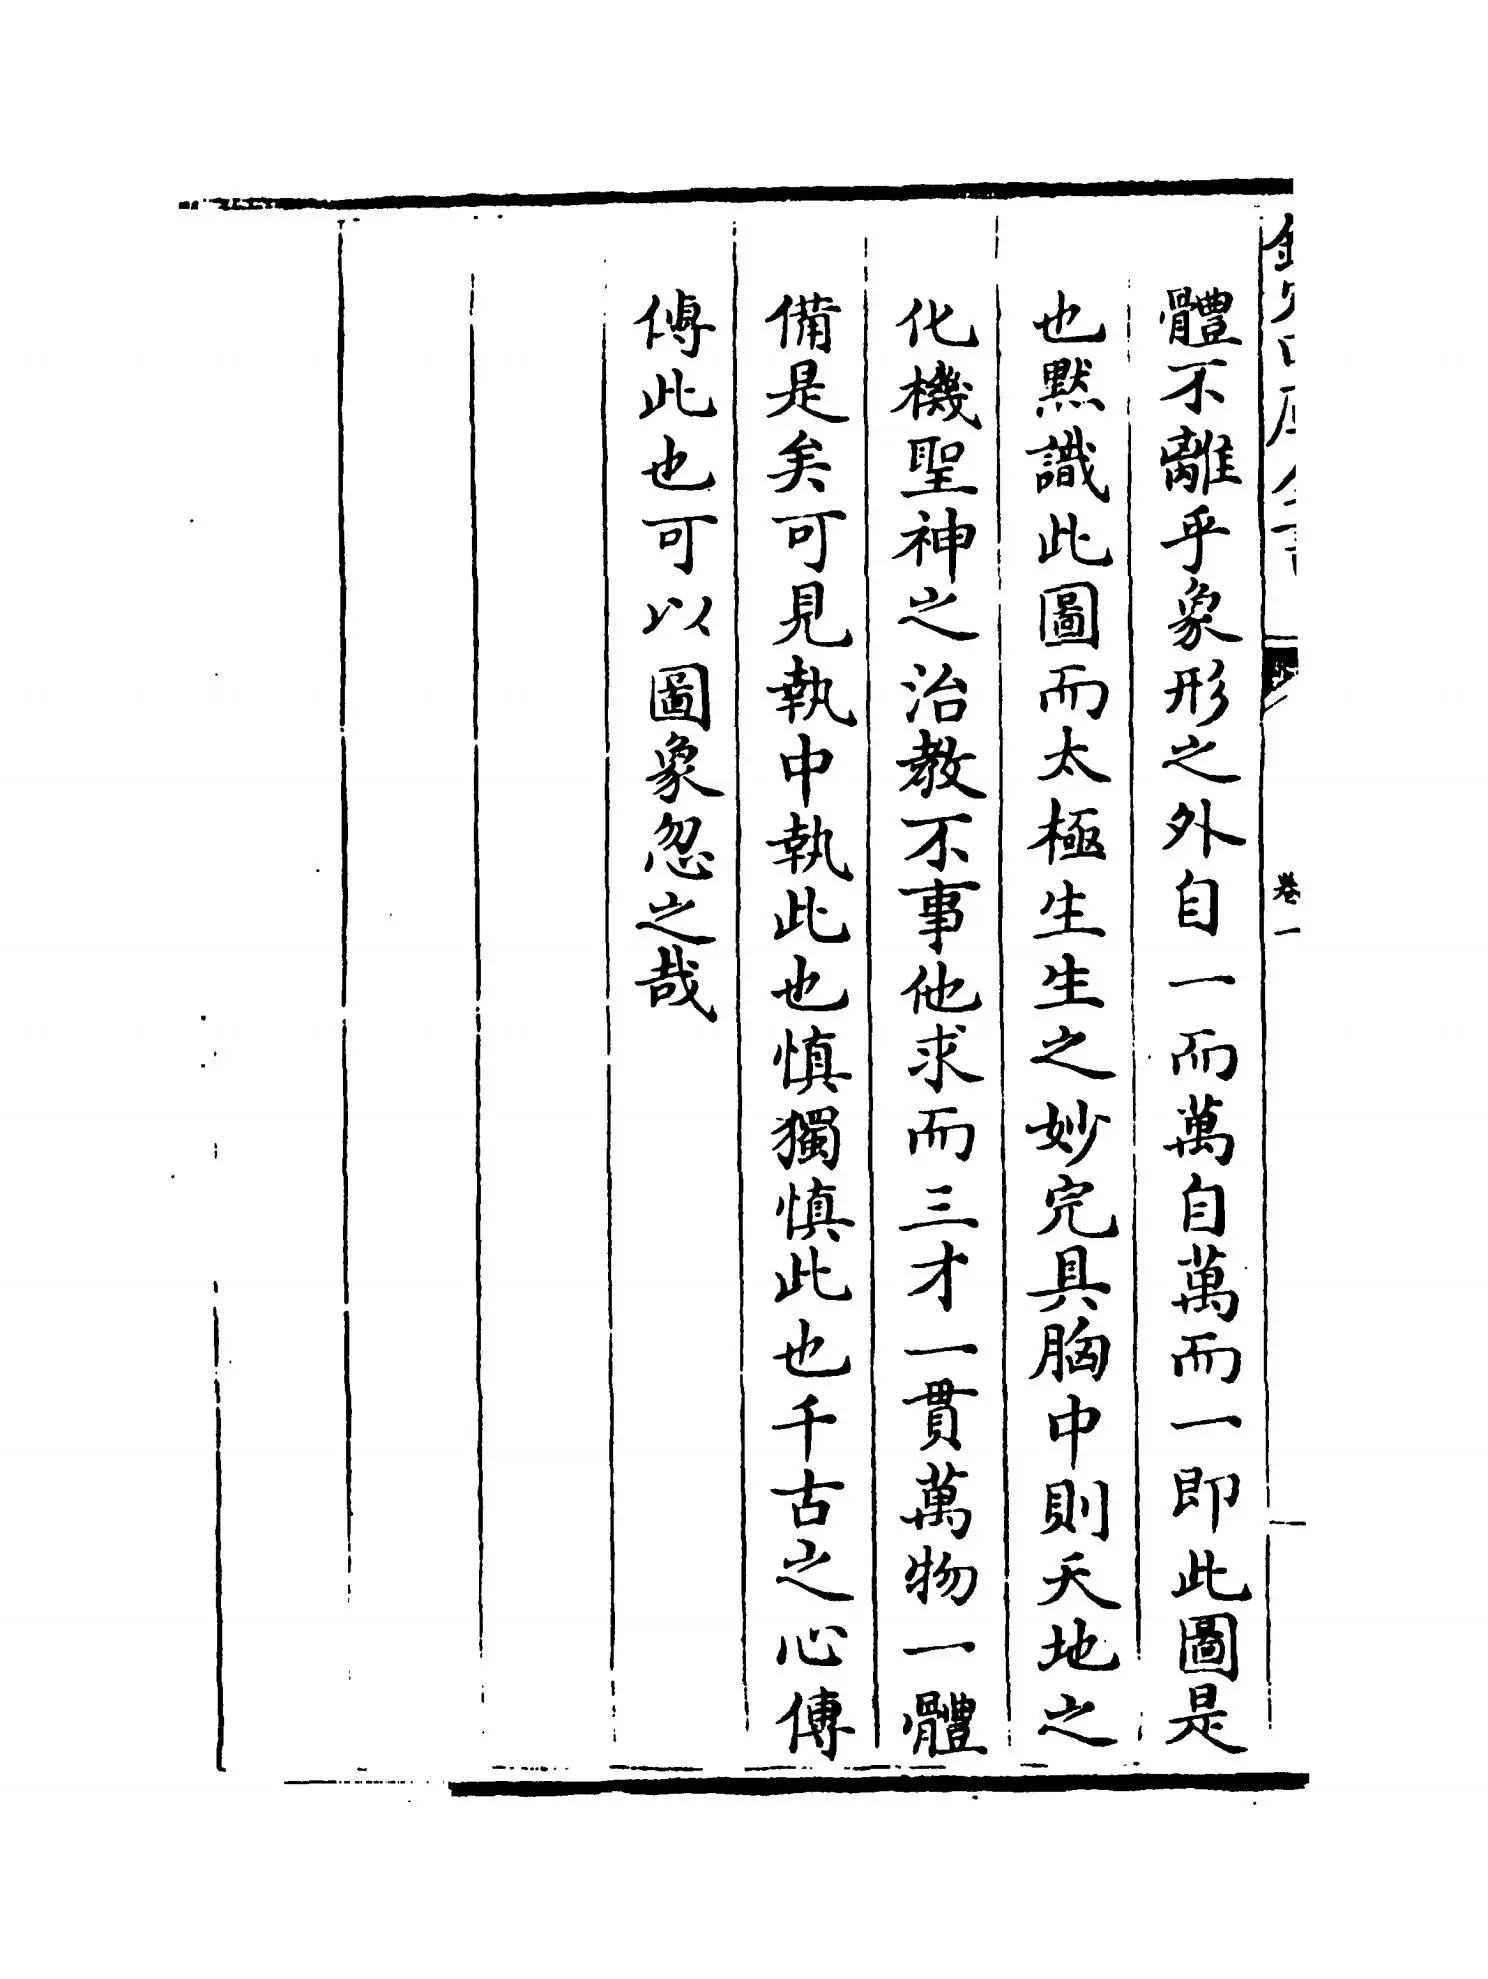 欽定四庫全書
卷一
體不離乎象形之外自一而萬自萬而一即此圖是
也黙識此圖而太極生生之妙完具胸中則天地之
化機聖神之治教不事他求而三才一貫萬物一體
備是矣可見執中執此也慎獨慎此也千古之心傳
傳此也可以圖象忽之哉